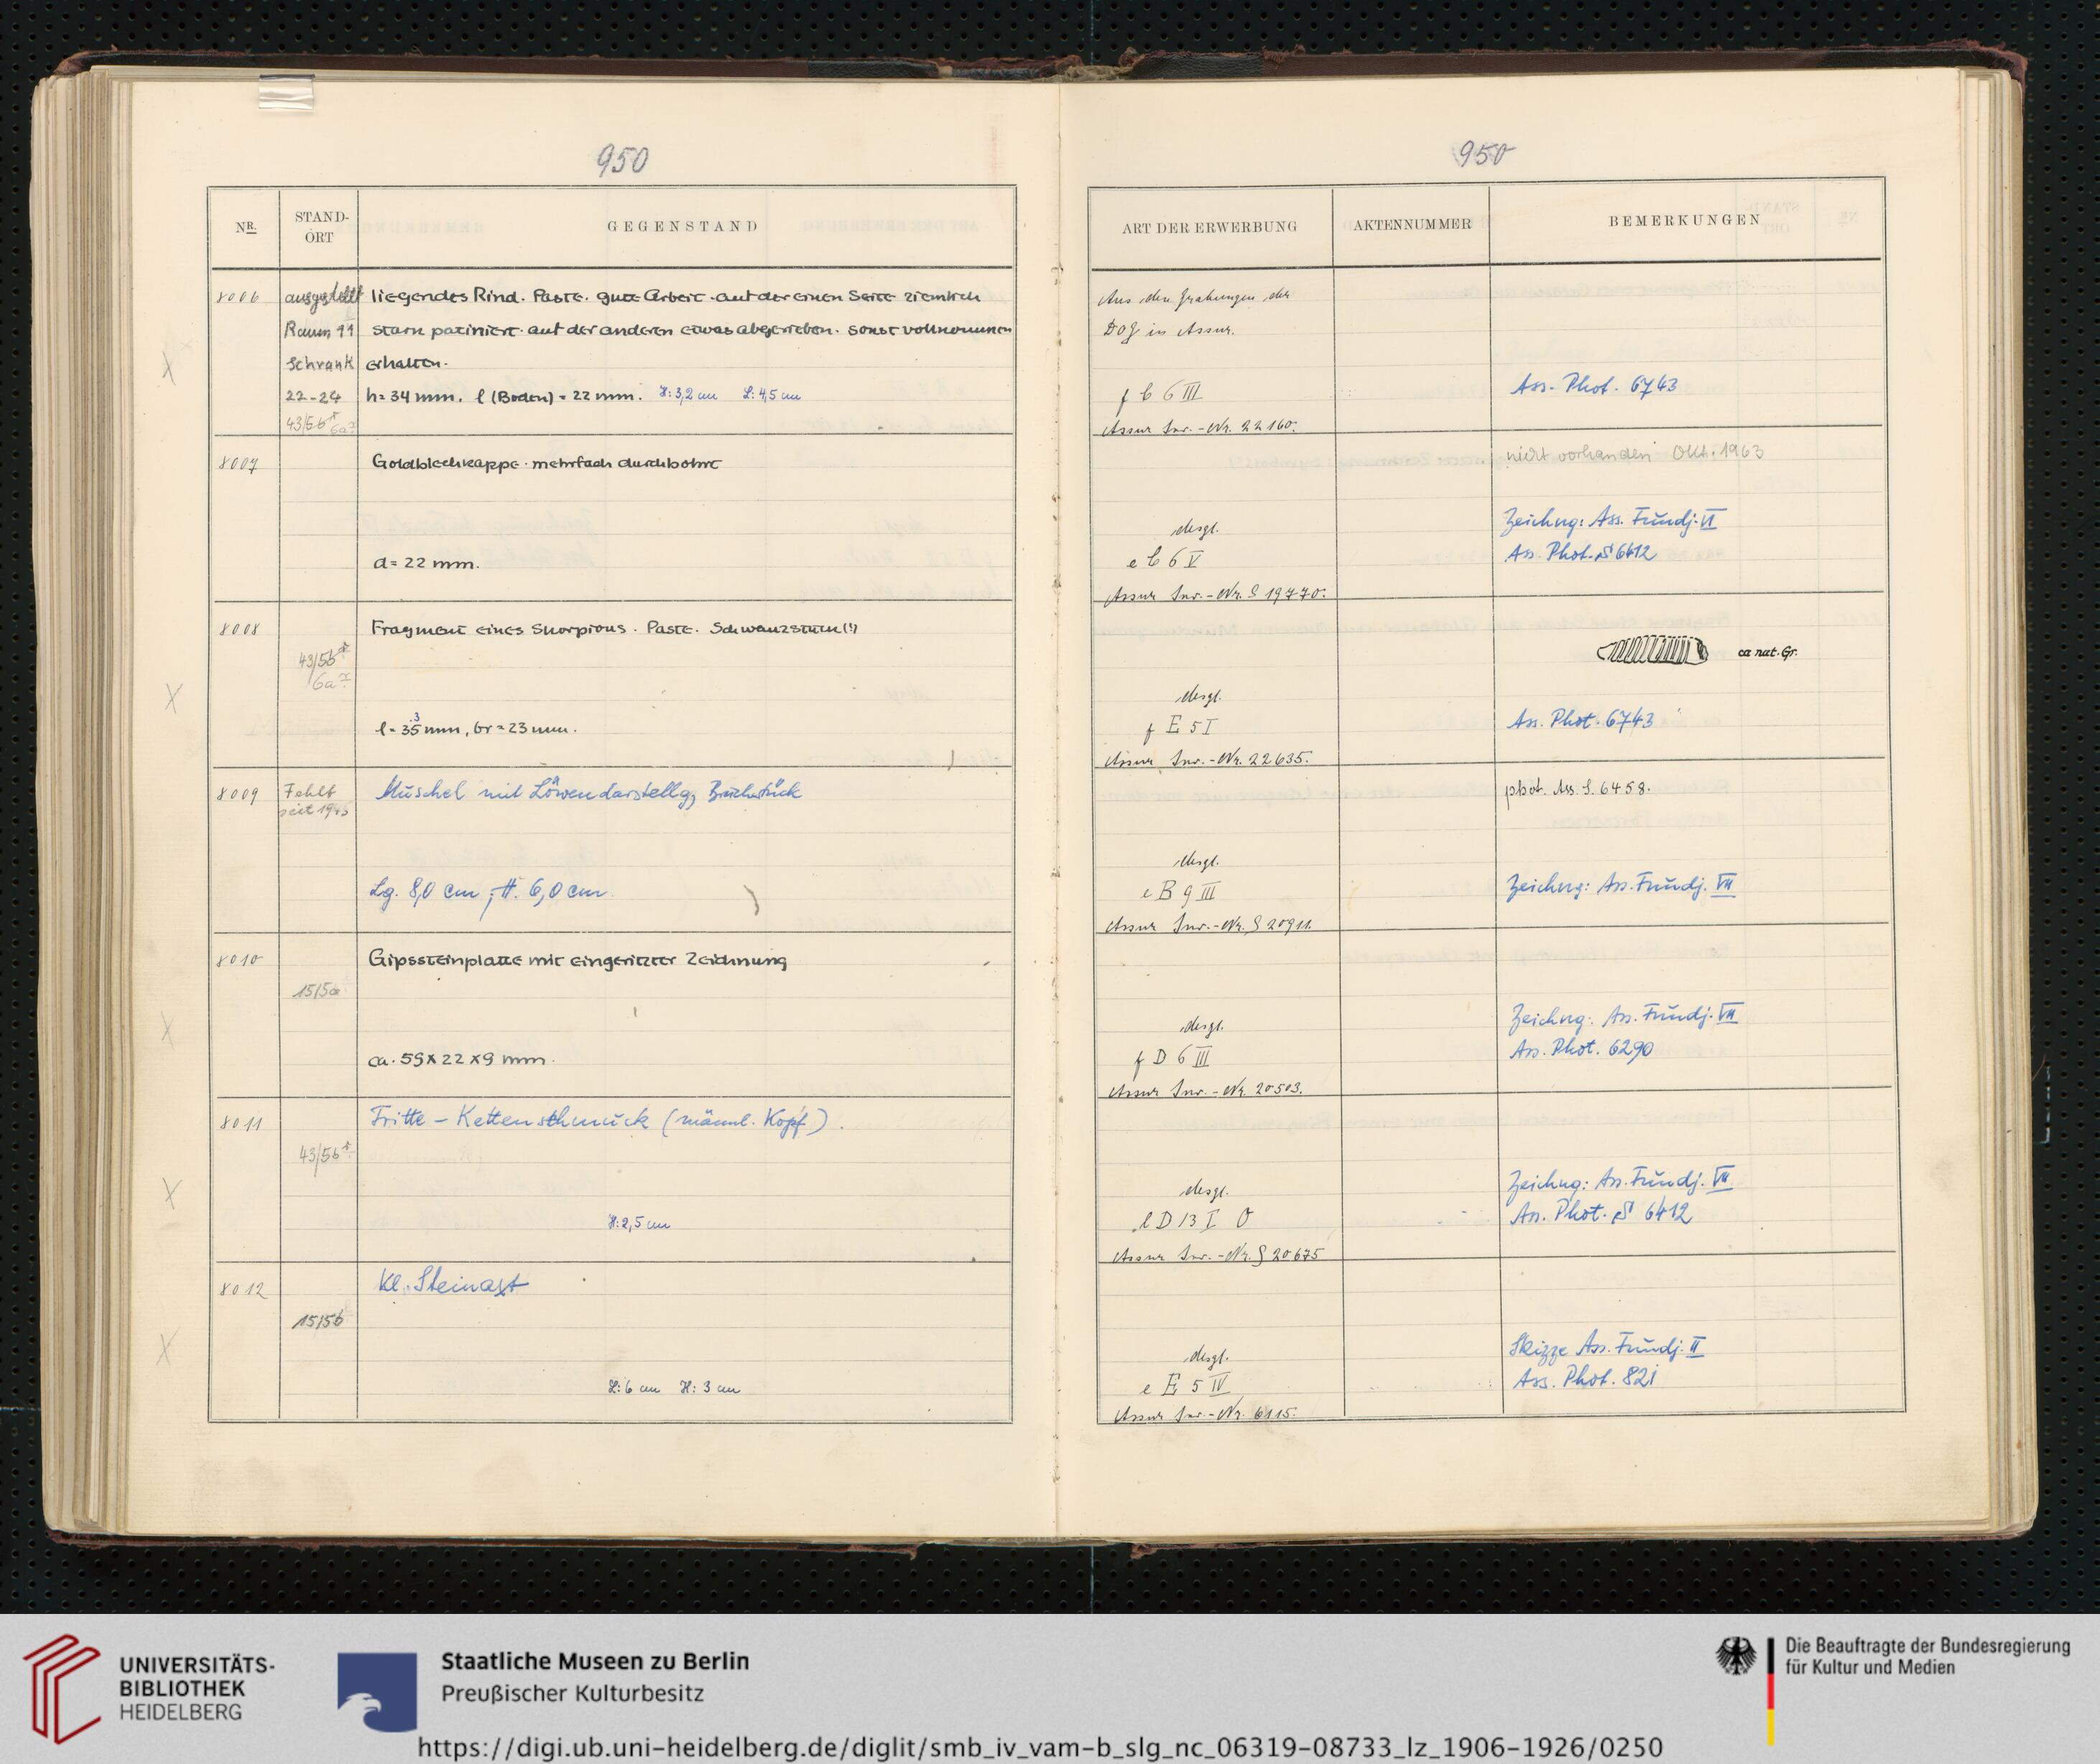 950
NR.
STAND-
ORT
GEGENSTAND
8006
ausgestellt
Raum 11
Schrank
22-24
43/5b
6a
liegendes Rind. Paste. gute Arbeit. auf der einen Seite ziemlich
stark patiniert. auf der anderen etwas abgerieben. sonst vollkommen
erhalten.
h = 34 mm. l (Boden) = 22 mm. H: 3,2 cm L: 4,5 cm
8007
Goldblechkappe. mehrfach durchbohrt
d = 22 mm.
8008
43/5b
6a
Fragment eines Skorpions. Paste. Schwanzstück (!)
3
l = 35 mm, br = 23 mm.
8009
Fehlt
seit 1945
Muschel mit Löwendarstellg, Bruchstück
Lg. 8,0 cm; H. 6,0 cm
8010
15/5a
Gipssteinplatte mit eingeritzter Zeichnung
ca. 59 x 22 x 9 mm.
8011
43/5b
Fritte - Kettenschmuck (männl. Kopf).
H: 2,5 cm
8012
15/5b
Kl. Steinaxt
L: 6 cm H: 3 cm
950
ART DER ERWERBUNG
AKTENNUMMER
BEMERKUNGEN
Aus den Grabungen der
DOG in Assur.
f C 6 III
Assur Inv.-Nr. 22160.
Ass. Phot. 6743
nicht vorhanden Okt. 1963
desgl.
e C 6 V
Assur Inv.-Nr. S 19770.
Zeichng: Ass. Fundj. VI
Ass. Phot. S 6412
ca nat. Gr.
desgl.
f E 5 I
Assur Inv.-Nr. 22635.
Ass. Phot. 6743
phot. Ass. S. 6458.
desgl.
e B 9 III
Assur Inv.-Nr. S 20911.
Zeichng: Ass. Fundj. VII
desgl.
f D 6 III
Assur Inv.-Nr. 20503.
Zeichng: Ass. Fundj. VII
Ass. Phot. 6290
desgl.
l D 13 I O
Assur Inv.-Nr. S 20675
Zeichng: Ass. Fundj. VII
Ass. Phot. S 6412
desgl.
e E 5 IV
Assur Inv.-Nr. 6115.
Skizze Ass. Fundj. II
Ass. Phot. 821
UNIVERSITÄTS-
BIBLIOTHEK
HEIDELBERG
Staatliche Museen zu Berlin
Preußischer Kulturbesitz
Die Beauftragte der Bundesregierung
für Kultur und Medien
https://digi.ub.uni-heidelberg.de/diglit/smb_iv_vam-b_slg_nc_06319-08733_lz_1906-1926/0250